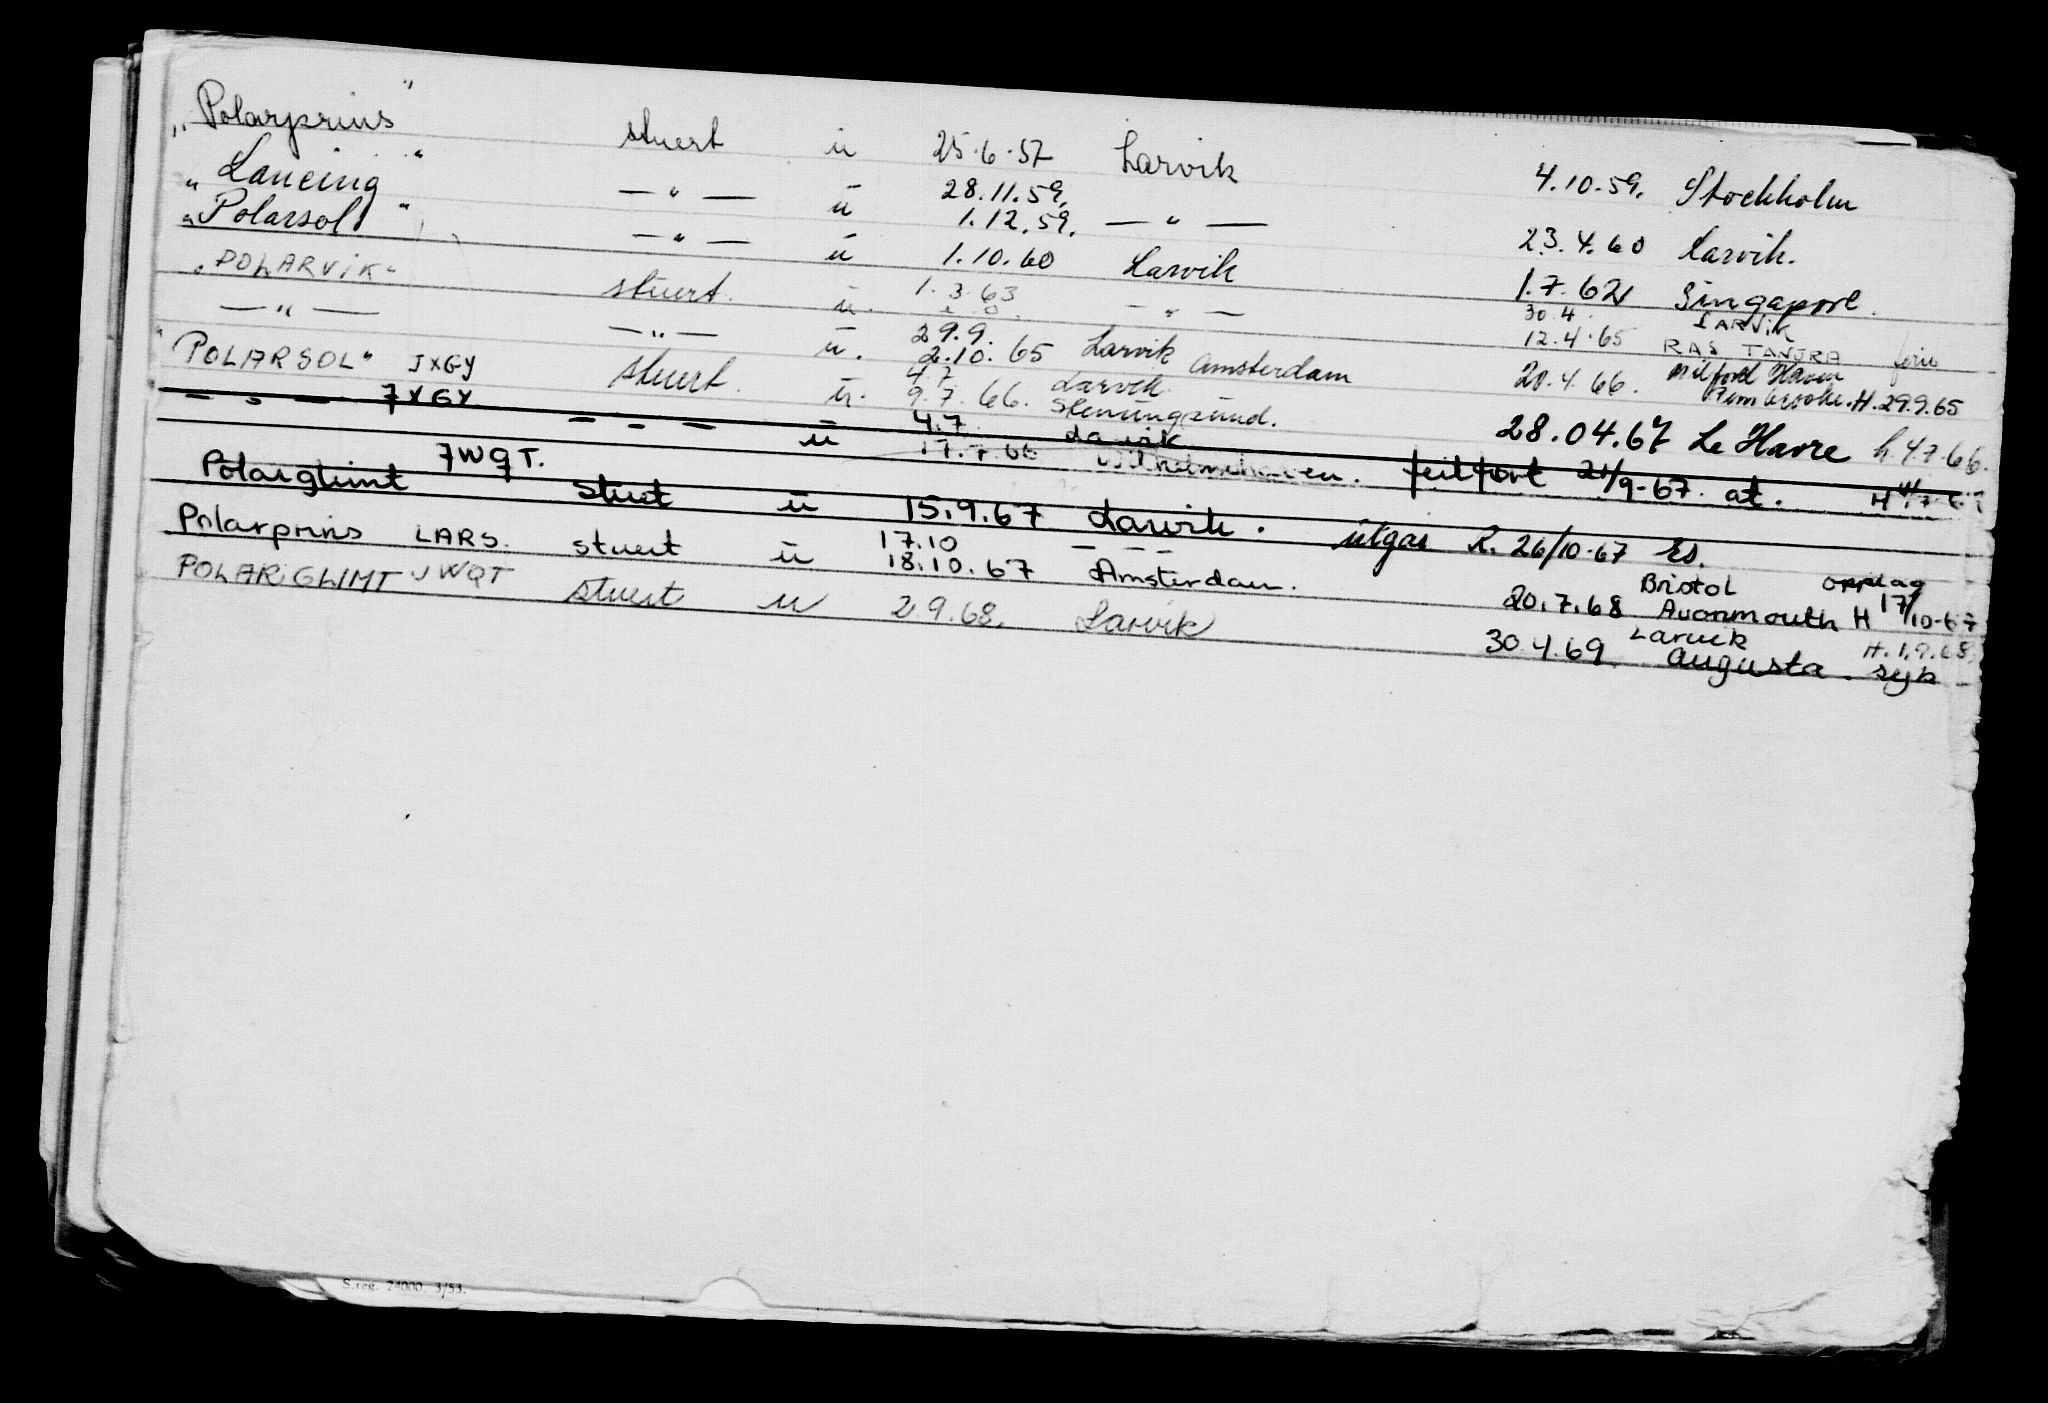 „Polarprins" stuert u 25.6.57 Larvik 4.10.59. Stockholm
„Lancing" — " — u 28.11.59, 1.12.59. — " — 23.4.60 Larvik.
„Polarsol" — " — u 1.10.60 Larvik 1.7.62 Singapore.
„POLARVIK" stuert. u. 1.3.63 — " — 30.4. LARVIK
12.4.65 RAS TANJRA ferie
— " — — " — u. 29.9. Larvik
2.10.65 Amsterdam 20.4.66. Milford Haven Pembroke. H. 29.9.65
"POLARSOL" JXGY stuert. u. 4.7 Larvik
9.7.66. Stenungsund. 28.04.67 Le Havre h. 4.7.66.
— " — 7XGY — " — u 4.7 Larvik
17.7.66 Wilhelmshaven. feilført 21/9-67. at.
Polarglimt 7WQT. stuert u 15.9.67 Larvik. utgår R. 26/10-67 Es.
Polarprins LARS. stuert u 17.10 — — —
18.10.67 Amsterdam. 20.7.68 Bristol Avonmouth opplag H 17/10-67
POLARGLIMT JWQT stuert u 2.9.68. Larvik 30.4.69. Larvik Augusta. H. 1.9.68, syk
S.reg. 24000. 3/53.